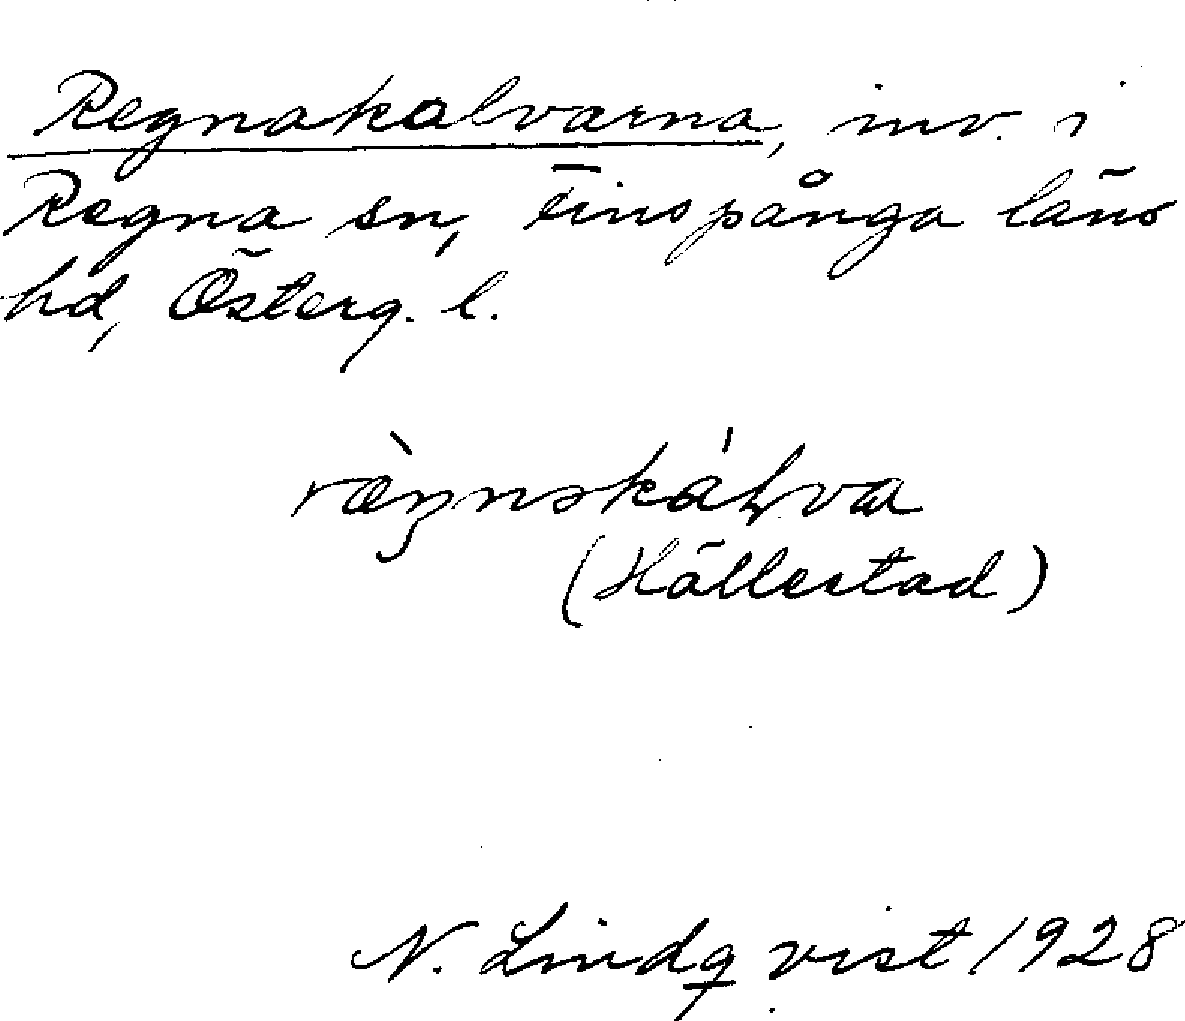 Regnakalvarna, inv. i
Regna sn, Finspånga läns
hd, Österg. l.
ræ̀ŋnskáɫva
(Hällestad)
N. Lindqvist 1928